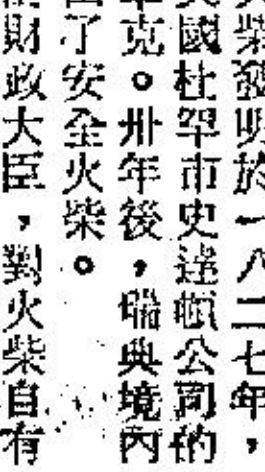 柴發明於一八二七年，
國杜罕市史達頓公司的
克。卅年後，瑞典境內
了安全火柴。
財政大臣，對火柴自有